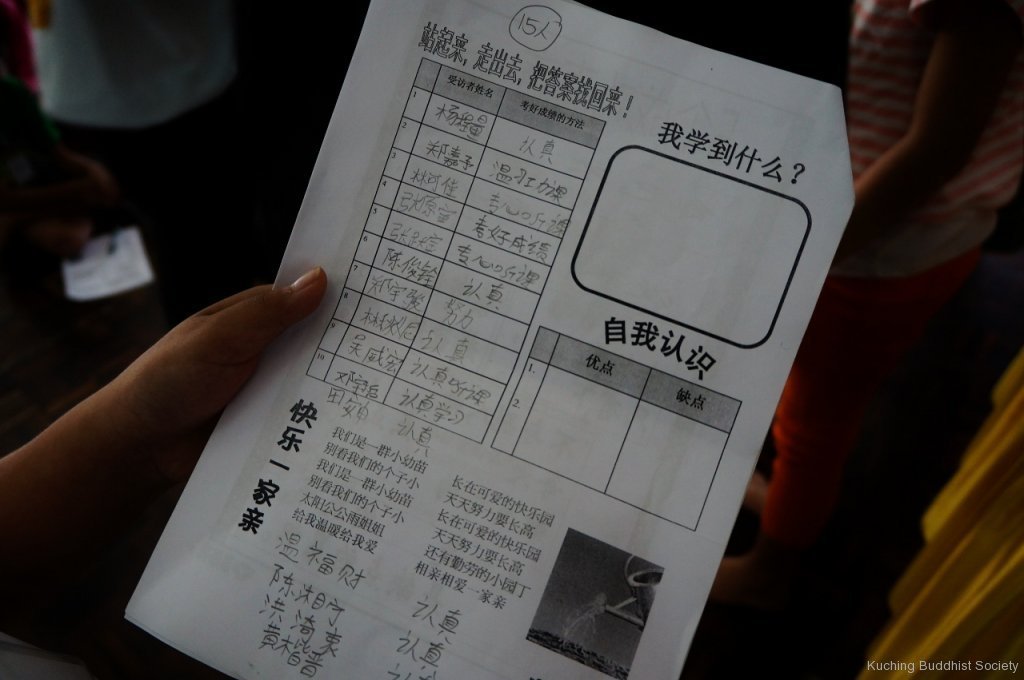 15人
站起来,走出去,把答案找回来!
受访者姓名 考好成绩的方法
1 认真
2 郑嘉予 温习功课
3 林可佳 专心听课
4 考好成绩
5 专心听课
6 陈俊铃 认真
7 努力
8 认真
9 吴威宏 认真听课
10 认真学习
认真
我学到什么?
自我认识
优点 缺点
1.
2.
快乐一家亲
我们是一群小幼苗
别看我们的个子小
我们是一群小幼苗
别看我们的个子小
太阳公公雨姐姐
给我温暖给我爱
长在可爱的快乐园
天天努力要长高
长在可爱的快乐园
天天努力要长高
还有勤劳的小园丁
相亲相爱一家亲
温福财 认真
认真
Kuching Buddhist Society